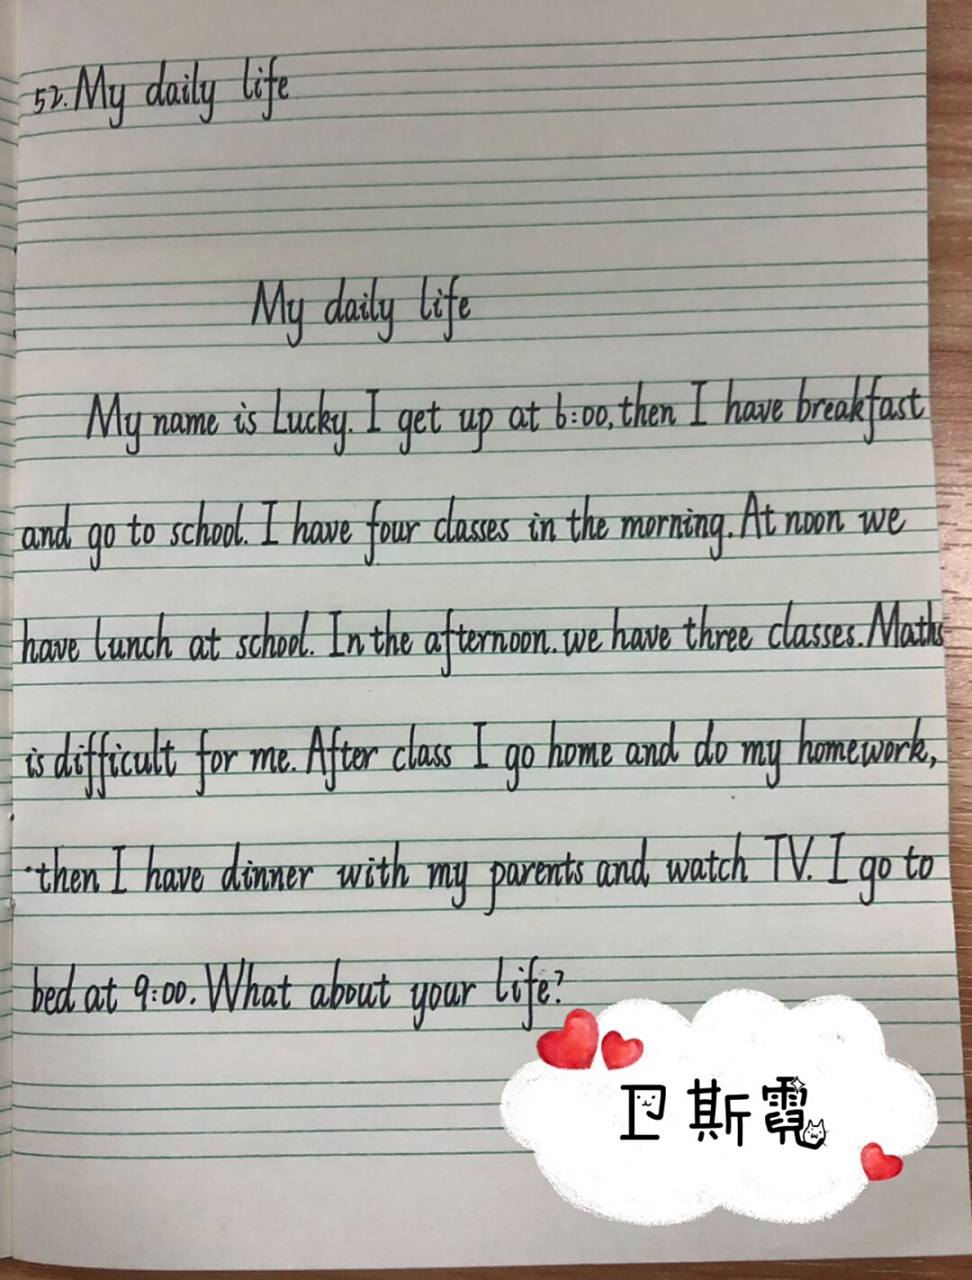 52. My daily life
My daily life
My name is Lucky. I get up at 6:00, then I have breakfast
and go to school. I have four classes in the morning. At noon we
have lunch at school. In the afternoon. we have three classes. Maths
is difficult for me. After class I go home and do my homework,
then I have dinner with my parents and watch TV. I go to
bed at 9:00. What about your life?
卫斯霓